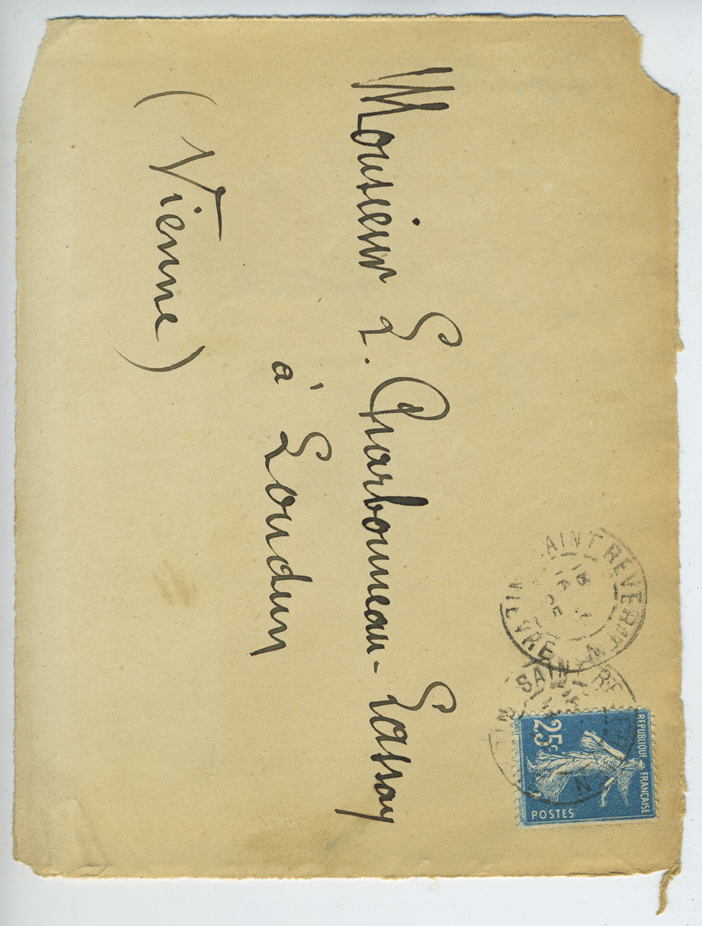 Monsieur L. Charbonneau-Lassay
à Loudun
(Vienne)
SAINT REVERIEN
NIEVRE
SAINT RE
REPUBLIQUE FRANÇAISE
25c
POSTES